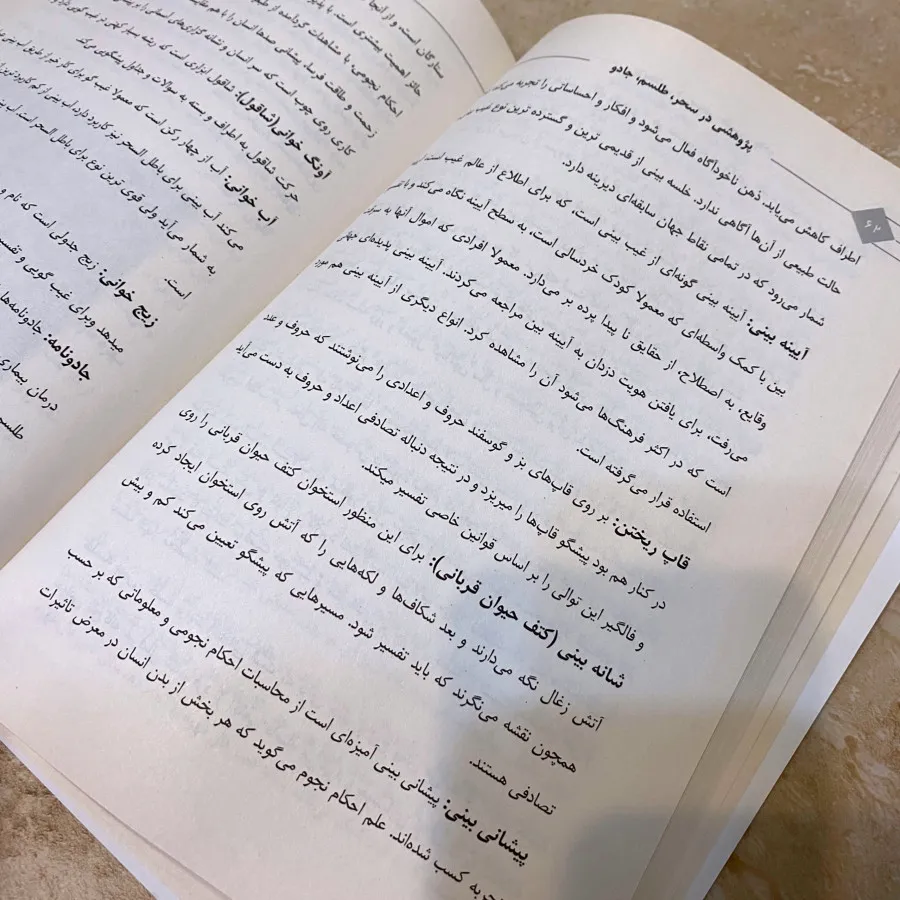 پژوهشی در سحر، طلسم، جادو
۶۲
اطراف کاهش می‌یابد. ذهن ناخودآگاه فعال می‌شود و افکار و احساساتی را تجربه می‌کند
حالت طبیعی از آن‌ها آگاهی ندارد. خلسه بینی از قدیمی ترین و گسترده ترین نوع غیب
شمار می‌رود که در تمامی نقاط جهان سابقه‌ای دیرینه دارد.
آیینه بینی: آیینه بینی گونه‌ای از غیب بینی است، که برای اطلاع از عالم غیب است
بین با کمک واسطه‌ای که معمولا کودک خردسالی است، به سطح آیینه نگاه می‌کند و با
وقایع، به اصطلاح، از حقایق نا پیدا پرده بر می‌دارد. معمولا افرادی که اموال آنها به
می‌رفت، برای یافتن هویت دزدان به آیینه بین مراجعه می‌کردند. آیینه بینی پدیده‌ای جهانی
است که در اکثر فرهنگ‌ها می‌شود آن را مشاهده کرد. انواع دیگری از آیینه بینی هم مورد
استفاده قرار می‌گرفته است.
قاپ ریختن: بر روی قاپ‌های بز و گوسفند حروف و اعدادی را می‌نوشتند که حروف و عدد
در کنار هم بود پیشگو قاپ‌ها را میریزد و در نتیجه دنباله تصادفی اعداد و حروف به دست می‌آید
و فالگیر این توالی را بر اساس قوانین خاصی تفسیر میکند.
شانه بینی (کتف حیوان قربانی): برای این منظور استخوان کتف حیوان قربانی را روی
آتش زغال نگه می‌دارند و بعد شکاف‌ها و لکه‌هایی را که آتش روی استخوان ایجاد کرده
همچون نقشه می‌نگرند که باید تفسیر شود. مسیرهایی که پیشگو تعیین می‌کند کم و بیش
تصادفی هستند.
پیشانی بینی: پیشانی بینی آمیزه‌ای است از محاسبات احکام نجومی و معلوماتی که بر حسب
کسب شده‌اند. علم احکام نجوم می‌گوید که هر بخش از بدن انسان در معرض تاثیرات
ستارگان است، و از اینجا
حائز اهمیت بیشتری است، با
احکام نجومی، با مشاهدات گردآمده از
زحمت و طاقت فرسا، پیشانی صدها انسان را با هم
کاری روی چوب است که سرانسان و نشانه گزاری‌های انسان را
آونگ خوانی(شاقول): شاقول ابزاری است که ریشه بسیار کهن در غیب گویی دارد
حرکت شاقول به اطراف و بسته به سوالات و جداول پیشگویی می‌کند
آب خوانی: آب از چهار رکن است که معمولا غیب گو برای کار خبر از ظرف آب
می‌کند آب بینی برای باطل السحر نیز کاربرد دارد، آب بینی از کم کاربرد ترین
به شمار می‌آید ولی قوی ترین نوع برای باطل السحر است. آب
است.
زیج خوانی: زیج جدولی است که نام و
میدهد وبرای غیب گویی و تفسیر
جادونامه: جادونامه‌ها
درمان بیماری
طلسم